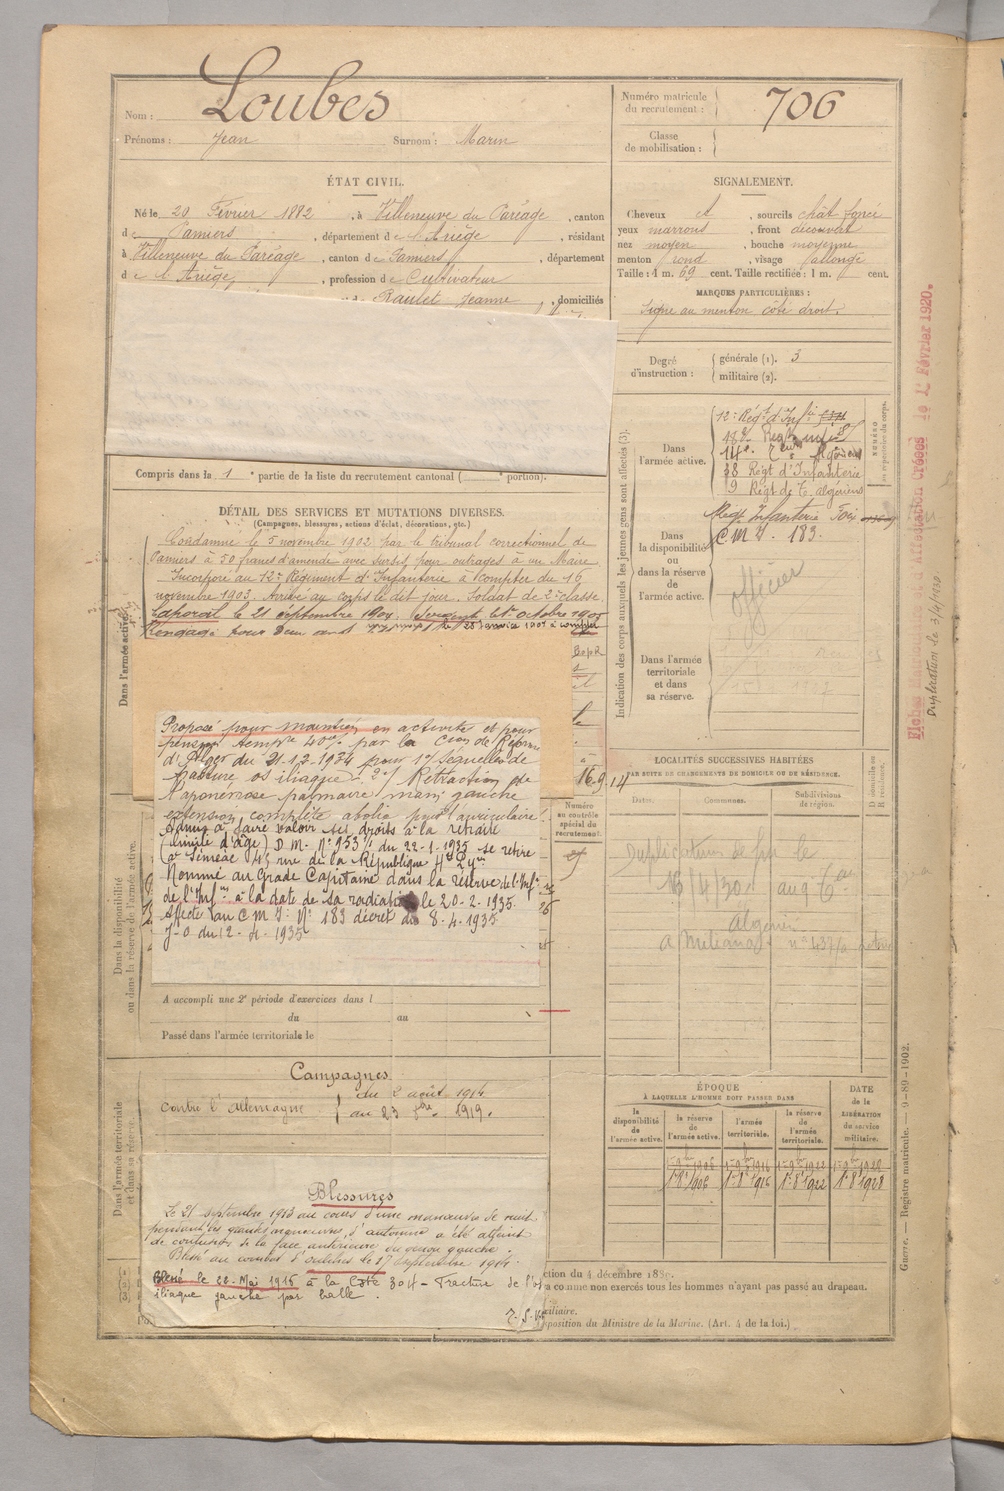 Nom : Loubes
Prénoms : Jean Surnom : Marin
Numéro matricule
du recrutement : 706
Classe
de mobilisation :
ÉTAT CIVIL.
Né le 20 Février 1882, à Villeneuve du Paréage, canton
de Pamiers, département de l'Ariège, résidant
à Villeneuve du Paréage, canton de Pamiers, département
de l'Ariège, profession de Cultivateur
Raulet Jeanne, domiciliés
SIGNALEMENT.
Cheveux , sourcils chât foncé
yeux marrons, front découvert
nez moyen, bouche moyenne
menton rond, visage allongé
Taille : 1 m. 69 cent. Taille rectifiée : 1 m. cent.
MARQUES PARTICULIÈRES :
Signe au menton côté droit.
Degré
d'instruction :
générale (1). 3
militaire (2).
Compris dans la 1e partie de la liste du recrutement cantonal ( portion).
DÉTAIL DES SERVICES ET MUTATIONS DIVERSES.
(Campagnes, blessures, actions d'éclat, décorations, etc.)
Condamné le 5 novembre 1902 par le tribunal correctionnel de
Pamiers à 50 francs d'amende avec sursis pour outrages à un Maire
Incorporé au 12e Régiment d'Infanterie à compter du 16
novembre 1903. Arrivé au corps le dit jour. Soldat de 2e classe.
Caporal le 21 septembre 1904. Sergent 1er octobre 1905
Rengagé pour deux ans
Proposé pour maintien en activité et pour
pension tempre 40% par la Cion de Réforme
d'Alger du 21.12.1934 pour 1°/ Séquelles de
fracture os iliaque. 2°/ Rétraction de
l'aponévrose palmaire main gauche
extension complète abolie pour l'auriculaire
Admis à faire valoir ses droits à la retraite
(limite d'âge) D.M. N° 953 du 22-1-1935 se retire
à Séméac 45 rue de la République
Nommé au Grade Capitaine dans la réserve de l'Inf
de l'Infie à la date de sa radiation le 20-2-1935.
Affecté au C M I N° 183 décret du 8-4-1935
J-O du 12-4-1935
16.9.14
A accompli une 2e période d'exercices dans l
du au
Passé dans l'armée territoriale le
Campagnes
Contre l'Allemagne
du 2 août 1914
au 23 1919.
Blessures
Le 21 septembre 1913 au cours d'une manœuvre de nuit
pendant les grandes manœuvres d'automne a été atteint
de contusion de la face antérieure du genou gauche.
Blessé au combat d' le 17 septembre 1914.
Blessé le 22 Mai 1916 à la Côte 304 - Fracture de l'os
iliaque gauche par balle.
Indication des corps auxquels les jeunes gens sont affectés (3).
Dans
l'armée active.
12e Régt d'Infie
18e Regt infie
14e
38 Régt d'Infanterie
9 Régt de T. algériens
NUMÉRO
au répertoire du corps.
Dans
la disponibilité
ou
dans la réserve
de
l'armée active.
Régt Infanterie Foix
C M I. 183.
officier
Dans l'armée
territoriale
et dans
sa réserve.
Numéro
au contrôle
spécial du
recrutement.
LOCALITÉS SUCCESSIVES HABITÉES
PAR SUITE DE CHANGEMENTS DE DOMICILE OU DE RÉSIDENCE.
Dates. Communes. Subdivisions
de région.
D domicile ou
R résidence.
Duplicatum le
16/4/30 au 9 Tir
algérien
à Miliana
ÉPOQUE
À LAQUELLE L'HOMME DOIT PASSER DANS
la
disponibilité
de
l'armée active.
la réserve
de
l'armée active.
l'armée
territoriale.
la réserve
de
l'armée
territoriale.
DATE
de la
LIBÉRATION
du service
militaire.
1er 8e 1906 1er 8e 1916 1er 8e 1922 1er 8e 1928
ction du 4 décembre 18
comme non exercés tous les hommes n'ayant pas passé au drapeau.
xiliaire.
position du Ministre de la Marine. (Art. 4 de la loi.)
Dans l'armée active.
Dans la disponibilité
ou dans la réserve de l'armée active.
Dans l'armée territoriale
et dans sa réserve.
Guerre. — Registre matricule. — 9-89-1902.
Fiches Matricule et d'Affectation Créées le 1er Février 1920.
Duplicatum le